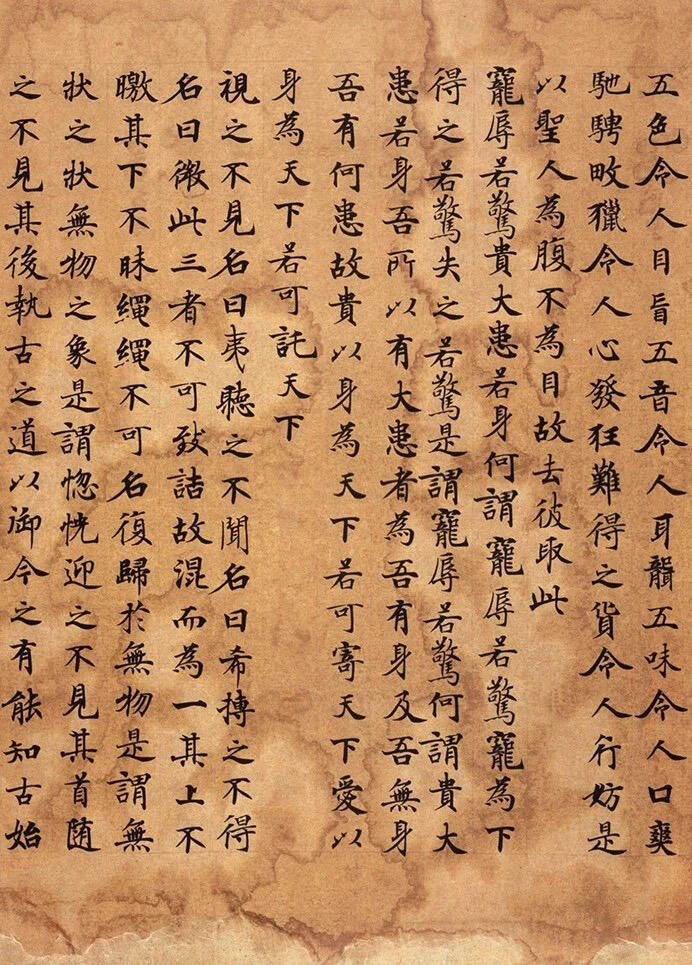 五色令人目盲五音令人耳聾五味令人口爽
馳騁畋獵令人心發狂難得之貨令人行妨是
以聖人為腹不為目故去彼取此
寵辱若驚貴大患若身何謂寵辱若驚寵為下
得之若驚失之若驚是謂寵辱若驚何謂貴大
患若身吾所以有大患者為吾有身及吾無身
吾有何患故貴以身為天下若可寄天下愛以
身為天下若可託天下
視之不見名曰夷聽之不聞名曰希搏之不得
名曰微此三者不可致詰故混而為一其上不
曒其下不昧繩繩不可名復歸於無物是謂無
狀之狀無物之象是謂惚恍迎之不見其首随
之不見其後執古之道以御今之有能知古始